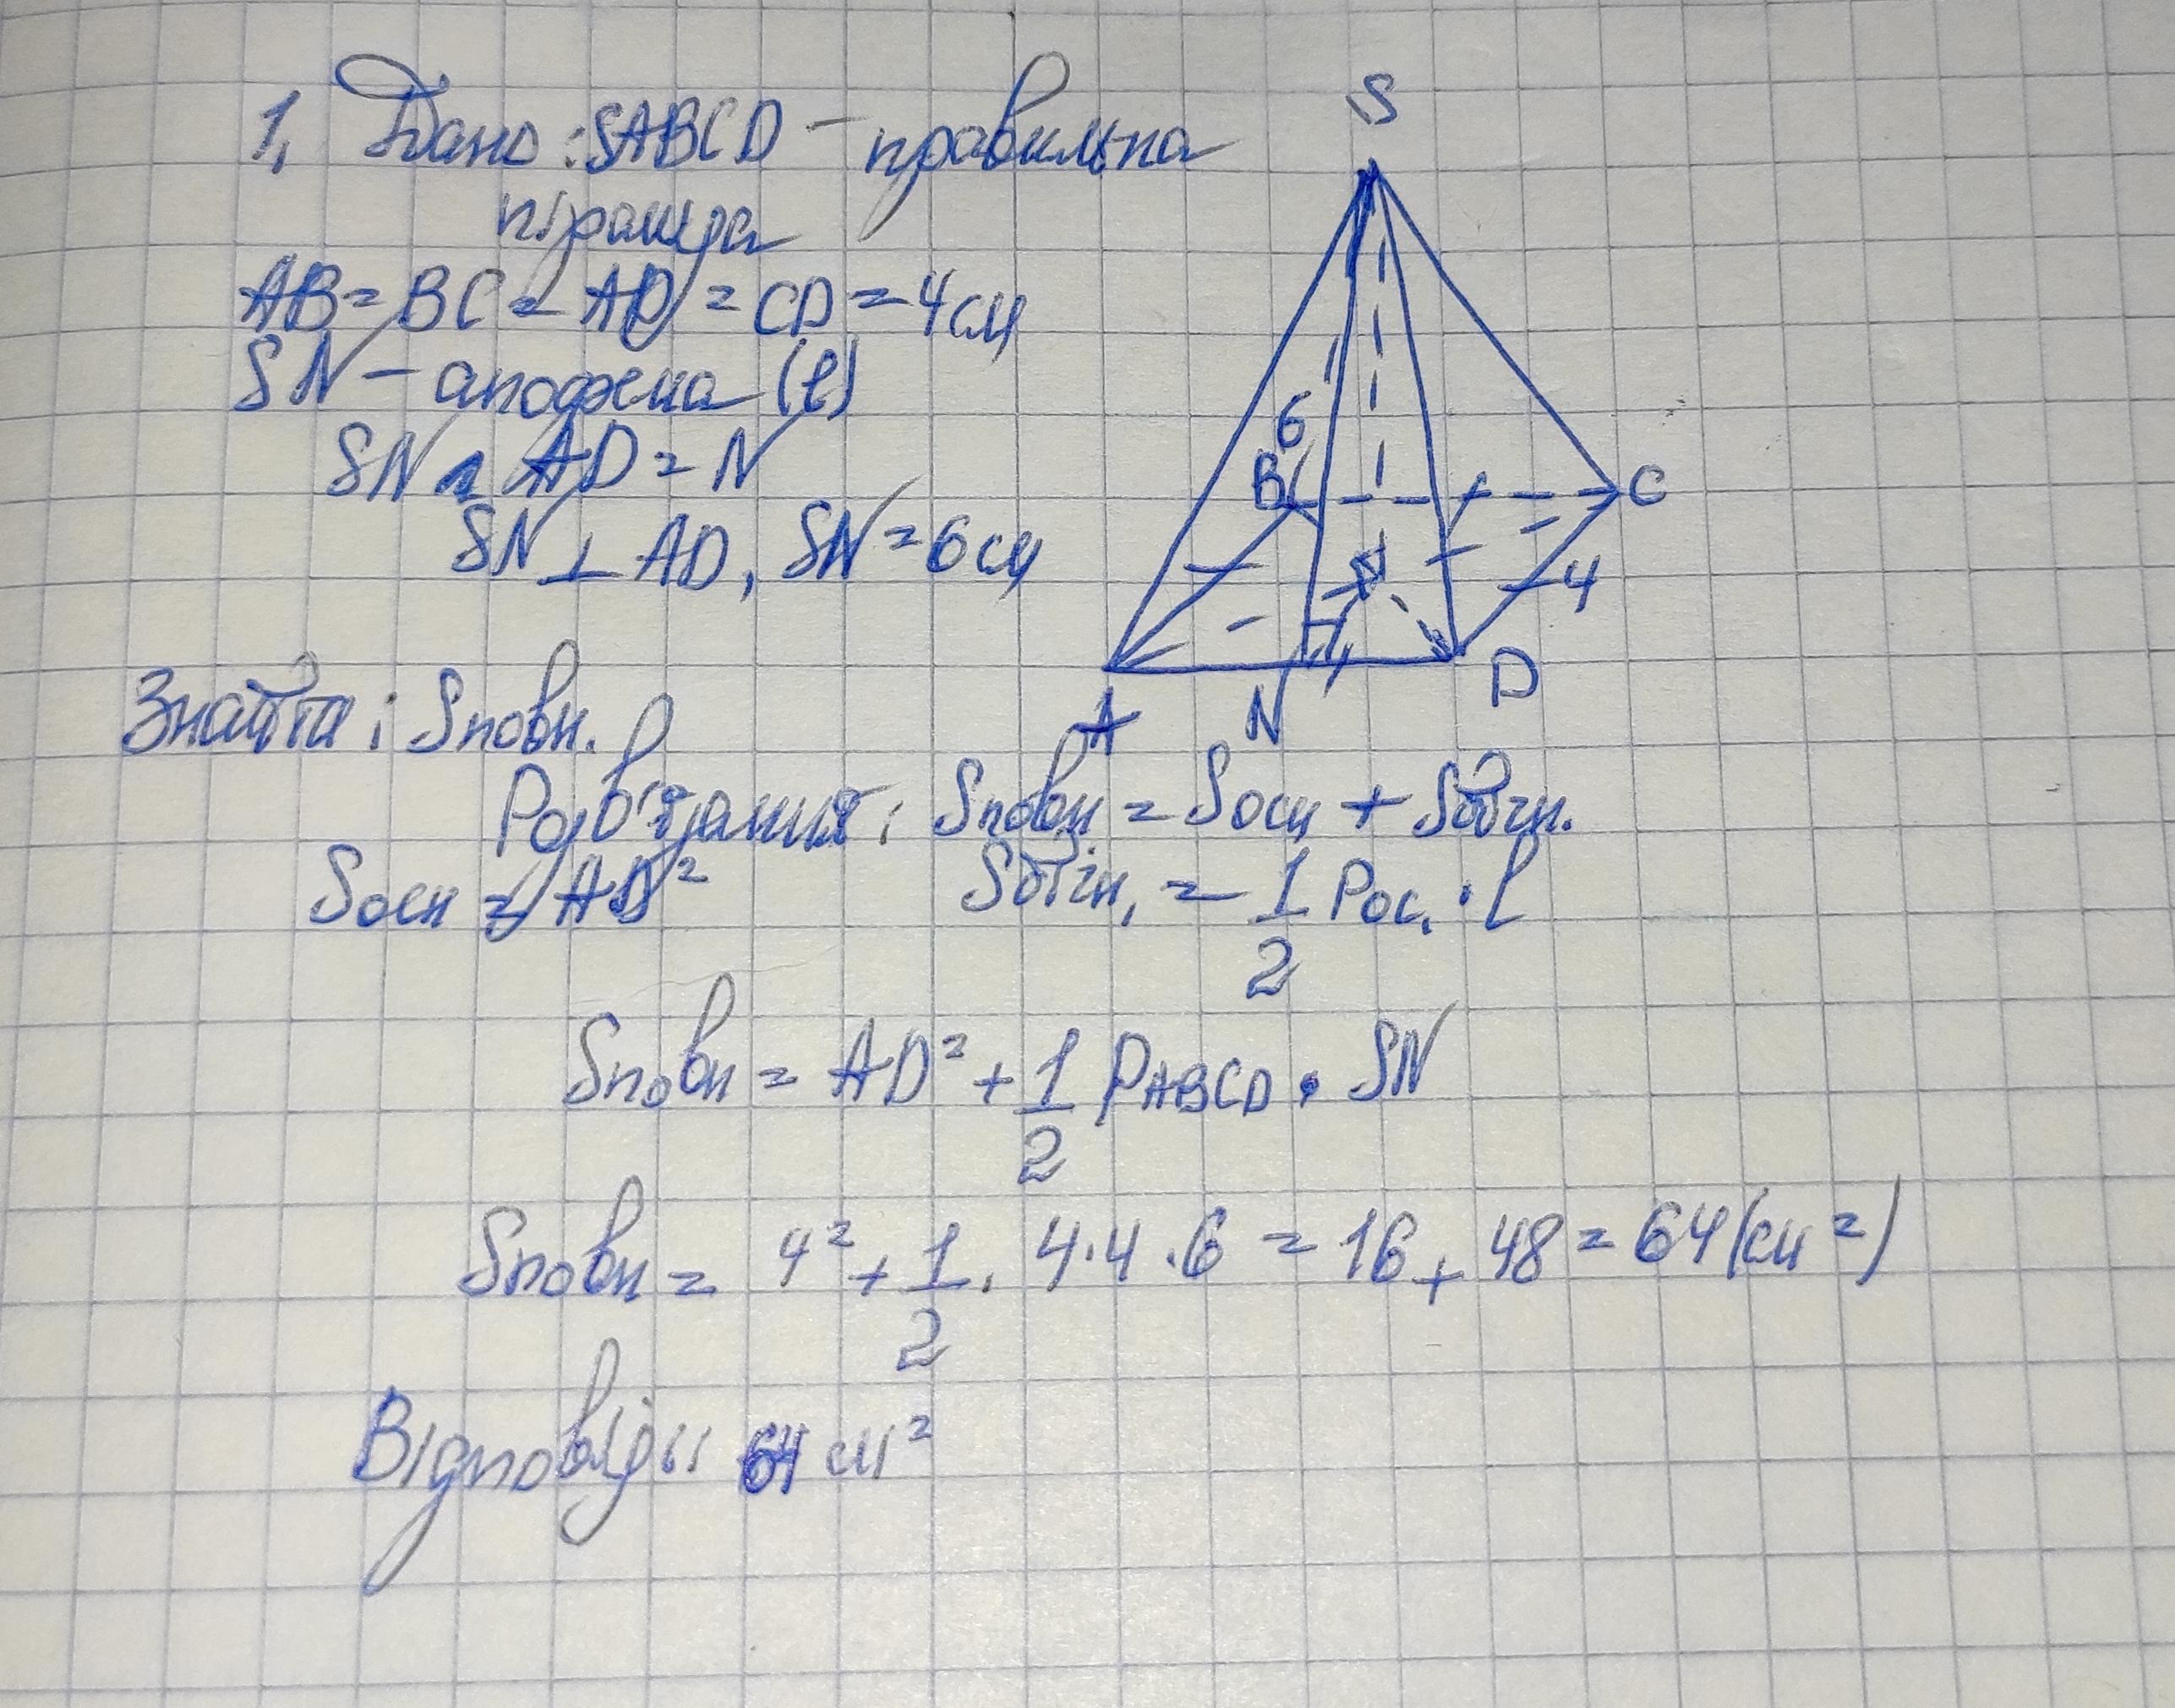 1. Дано: SABCD – правильна
піраміда
AB = BC = AD = CD = 4 см
SN – апофема (l)
SN ∩ AD = N
SN ⊥ AD, SN = 6 см
S
6
B
C
4
A
N
D
Знайти: Sповн.
Розв'язання: Sповн = Sосн + Sбічн.
Sосн = AD² Sбічн. = 1/2 Pос. · l
Sповн = AD² + 1/2 PABCD · SN
Sповн = 4² + 1/2 · 4·4·6 = 16 + 48 = 64 (см²)
Відповідь: 64 см²